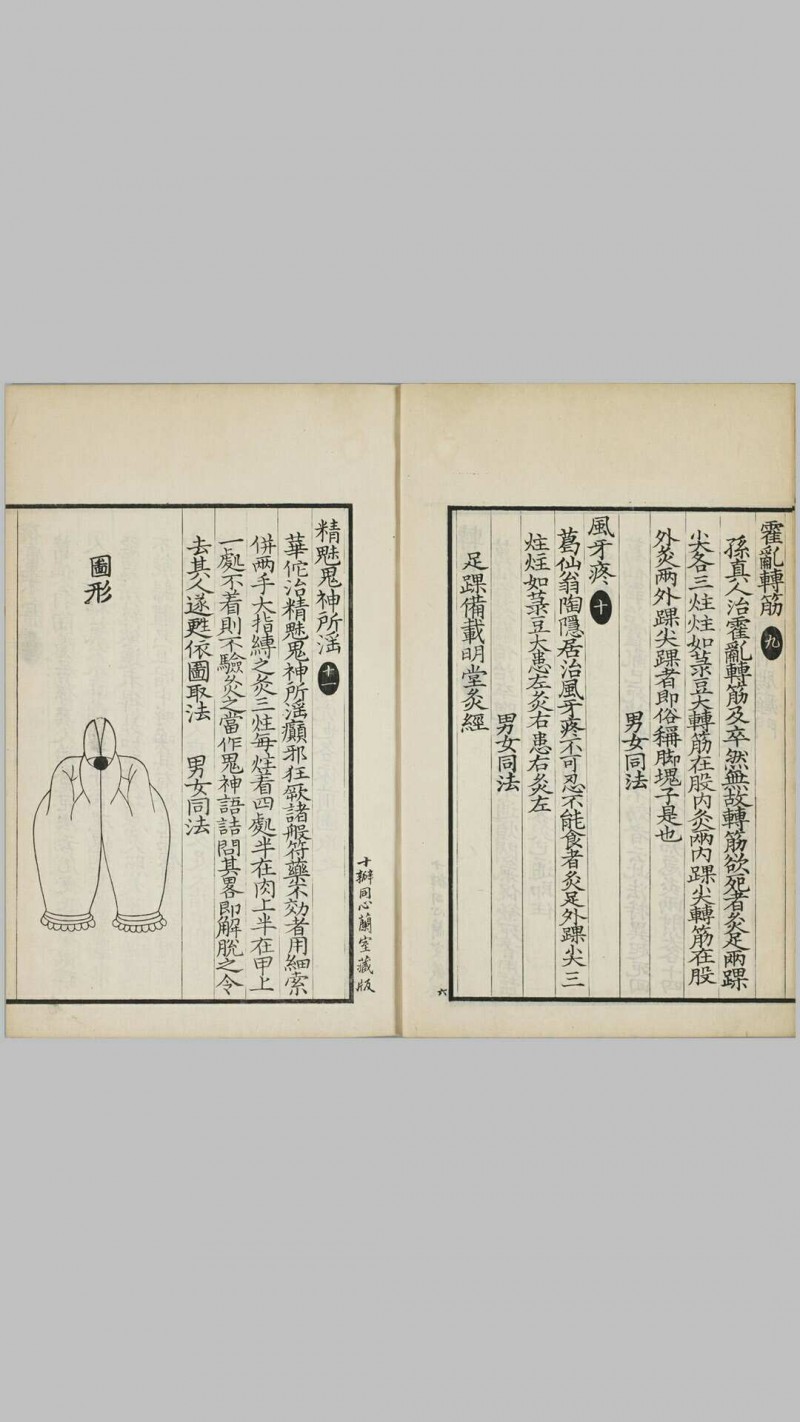 霍亂轉筋 九
孫真人治霍亂轉筋及卒然無故轉筋欲死者灸足兩踝
尖各三炷炷如菉豆大轉筋在股內灸兩內踝尖轉筋在股
外灸兩外踝尖踝者即俗稱脚塊子是也
男女同法
風牙疼 十
葛仙翁陶隱居治風牙疼不可忍不能食者灸足外踝尖三
炷炷如菉豆大患左灸右患右灸左
男女同法
足踝備載明堂灸經
六
十瓣同心蘭室藏版
精魅鬼神所淫 十一
華佗治精魅鬼神所淫癲邪狂厥諸般符藥不効者用細索
併兩手大指縛之灸三炷每炷着四處半在肉上半在甲上
一處不着則不驗灸之當作鬼神語詰問其畧即解脫之令
去其人遂甦依圖取法 男女同法
圖形